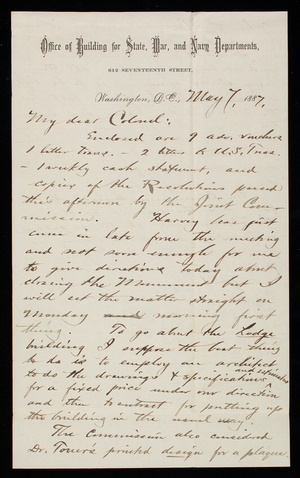 Office of Building for State, War, and Navy Departments,
612 SEVENTEENTH STREET,
Washington, D.C., May 7, 1887,
My dear Colonel:
Enclosed are 9 adv. vouchers
1 letter trans. - 2 letters to U.S. Treas.
- 1 weekly cash statement, and
copies of the Resolutions passed
this afternoon by the Joint Com-
mission. Harvey has just
come in late from the meeting
and not soon enough for me
to give directions today about
closing the Monument but I
will set the matter straight on
Monday morning first
thing. To go about the Lodge
building I suppose the best thing
to do is to employ an architect
to do the drawings & specifications and estimates
for a fixed price under our direction
and then to contract for putting up
the building in the usual way.
The Commission also considered
Dr. Toner's printed design for a plaque